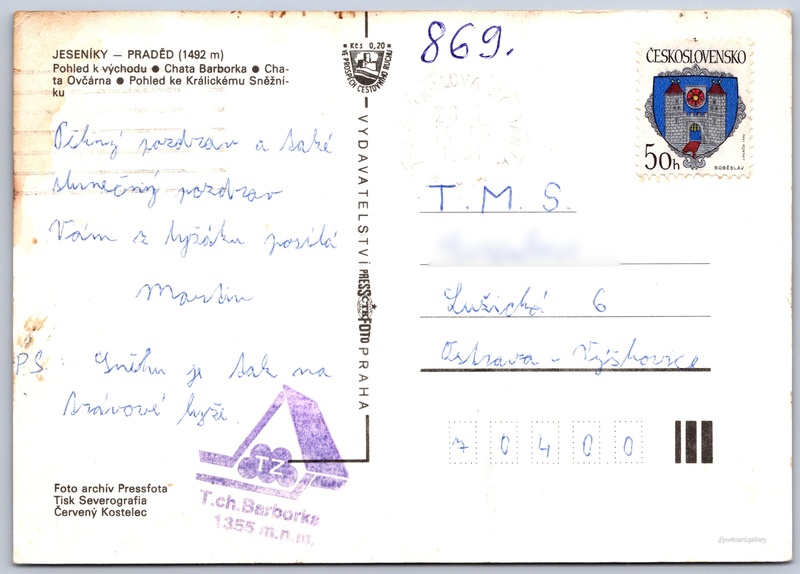 JESENÍKY — PRADĚD (1492 m)
Pohled k východu ● Chata Barborka ● Cha-
ta Ovčárna ● Pohled ke Králickému Sněžní-
ku
Pěkný pozdrav a také
slunečný pozdrav
Vám z lyžáku posílá
Martin
P.S. Sněhu je tak na
trávové lyže.
Foto archív Pressfota
Tisk Severografia
Červený Kostelec
T.ch. Barborka
1355 m.n.m.
TZ
Kčs 0,20
VE PROSPĚCH CESTOVNÍHO RUCHU
VYDAVATELSTVÍ PRESSFOTO PRAHA
869.
ČESKOSLOVENSKO
50h
SOBĚSLAV
T. M. S.
Lužická 6
Ostrava - Výškovice
70400
//postcard.gallery